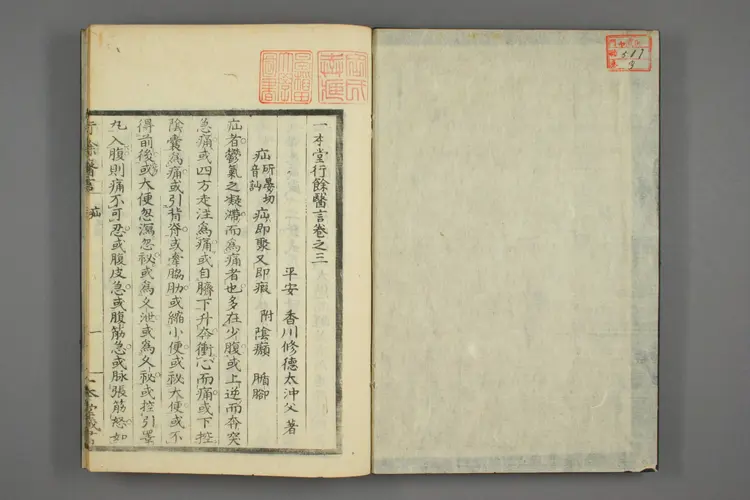 一本堂行餘醫言卷之三
平安 香川修德太沖父 著
疝 所晏切 音訕 疝即聚又即瘕 附 陰㿗 腯腳
疝者鬱氣之凝滯而為痛者也多在少腹或上逆而奔突
急痛或四方走注為痛或自臍下升奔衝心而痛或下控
陰囊為痛或引背脊或牽脇肋或縮小便或祕大便或不
得前後或大便忽瀉忽祕或為久泄或為久祕或控引睪
丸入腹則痛不可忍或腹皮急或腹筋急或脉張筋怒如
行餘醫言 疝 一